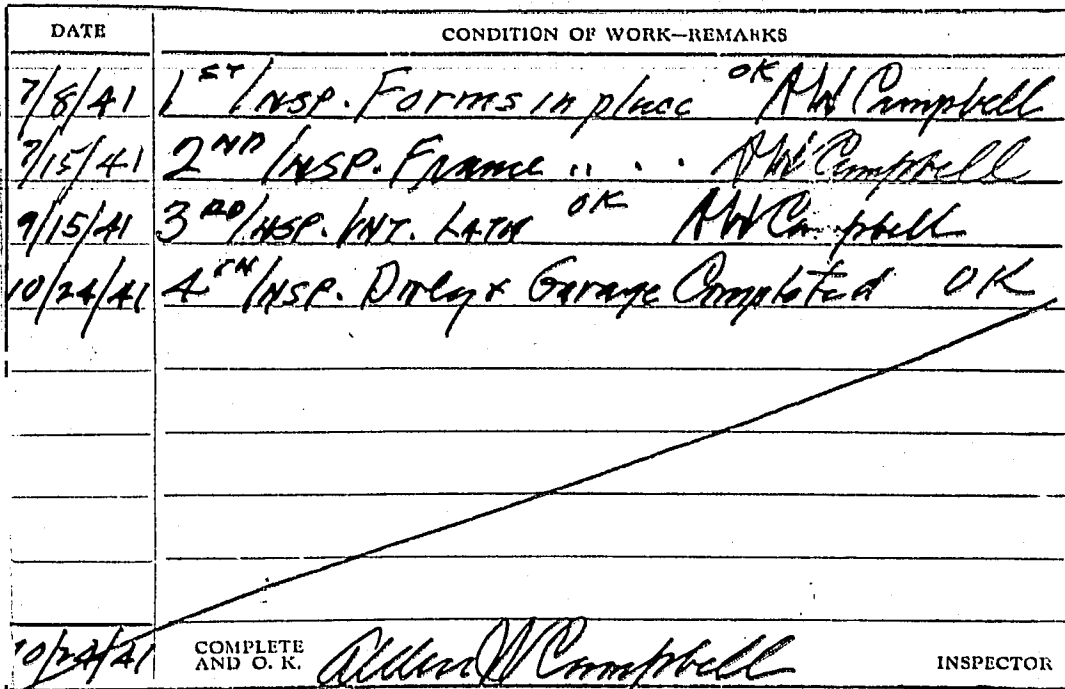 DATE CONDITION OF WORK—REMARKS
7/8/41 1ST INSP. Forms in place OK AW Campbell
7/15/41 2ND INSP. Frame " " AW Campbell
9/15/41 3RD INSP. INT. LATH OK AW Campbell
10/24/41 4TH INSP. Dwlg & Garage Completed OK
10/24/41 COMPLETE AND O. K. Allen W Campbell INSPECTOR